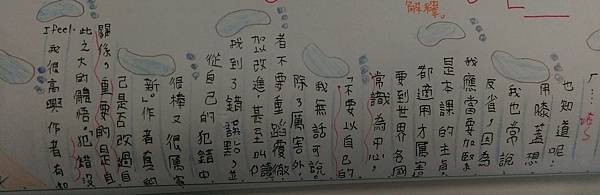 解釋。
也知道呢！
用膝蓋想
我也常說
反省，因為
我應當要加緊
是本課的主旨
都適用才厲害
要到世界各國
常識為中心，
「不要以自己的
我無話可說。
除了厲害外，
者不要重蹈覆徹
加以改進，甚至叫讀
找到了錯誤點，並
從自己的犯錯中
很棒又很厲害
新。」作者真的
己是否改過自
關係，重要的是自
此之大的體悟「犯錯沒
我很高興作者有如
I feel.